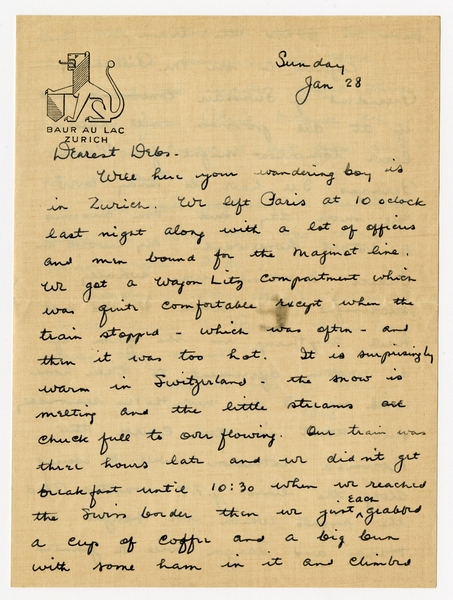 Sunday
Jan 28
BAUR AU LAC
ZURICH
Dearest Debs.
Well here your wandering boy is
in Zurich. We left Paris at 10 oclock
last night along with a lot of officers
and men bound for the Maginot line.
We got a Wagon Litz compartment which
was quite comfortable except when the
train stopped - which was often - and
then it was too hot. It is surprisingly
warm in Switzerland - the snow is
melting and the little streams are
chuck full to over flowing. Our train was
three hours late and we didn't get
breakfast until 10:30 when we reached
the Swiss border then we just each grabbed
a cup of coffee and a big bun
with some ham in it and climbed